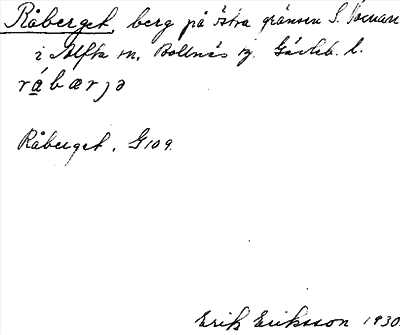 Råberget, berg på östra gränsen S.
i Alfta sn, Bollnäs tg. Gävleb. l.
råbærjə
Råberget, G 109.
Erik Eriksson 1930